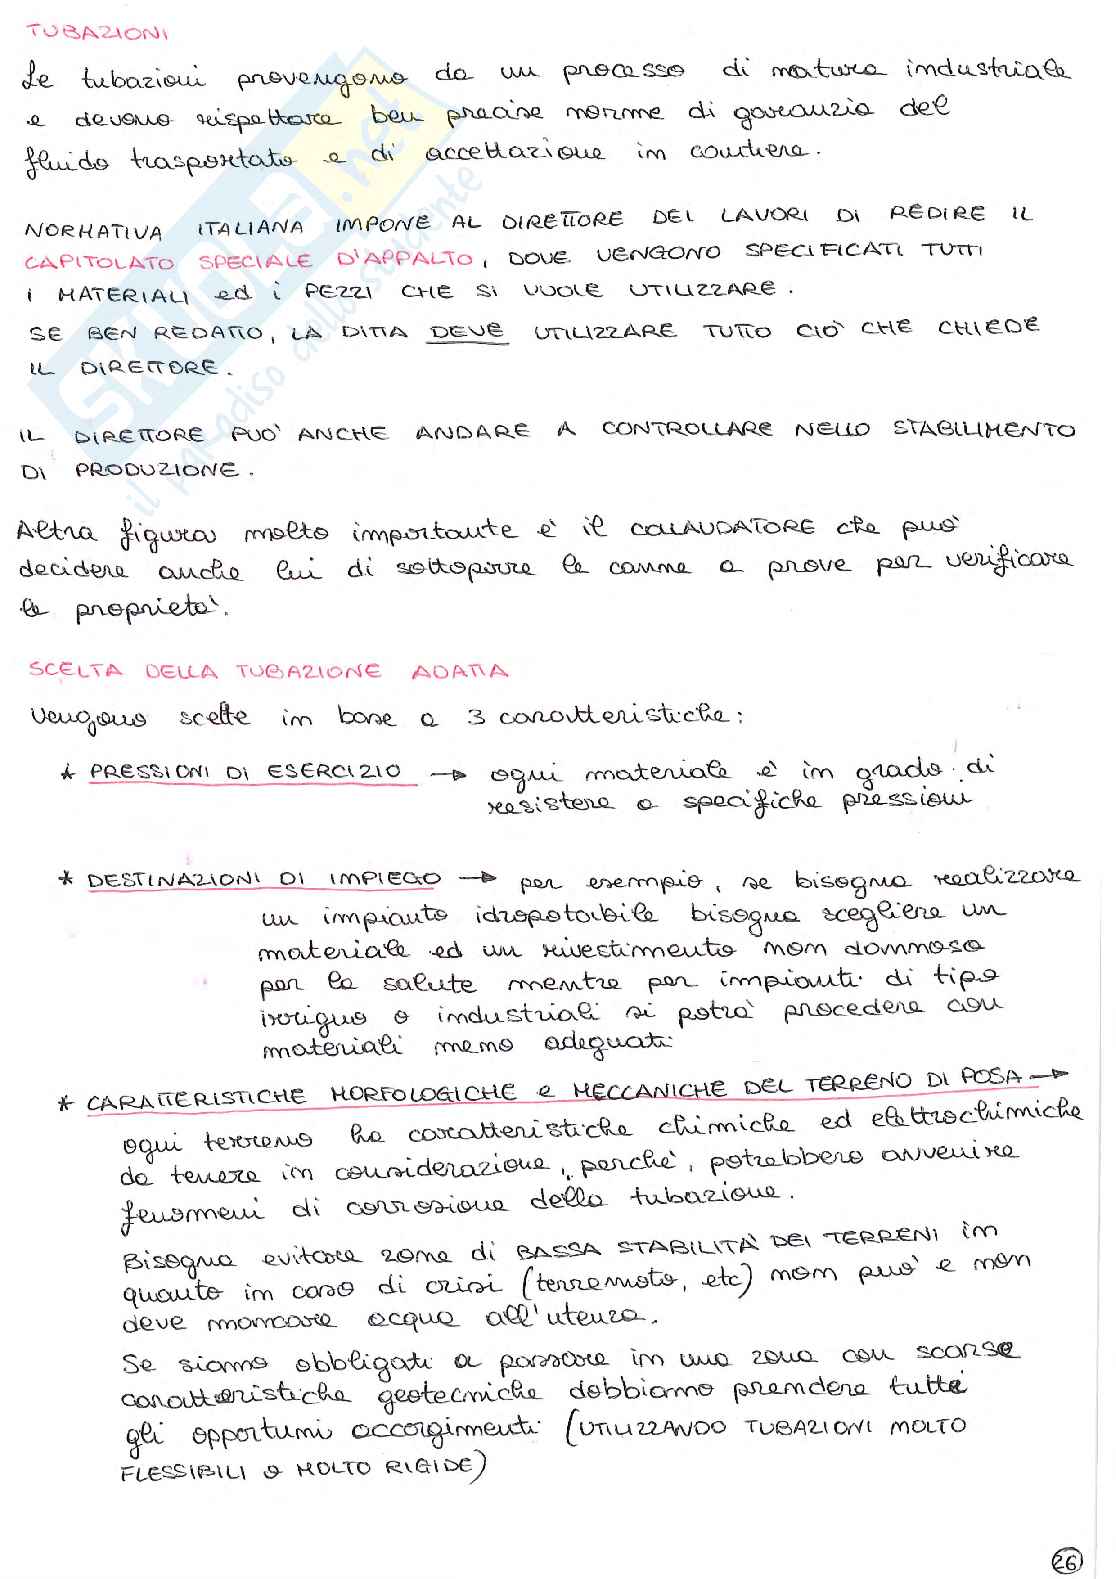 TUBAZIONI
Le tubazioni provengono da un processo di natura industriale
e devono rispettare ben precise norme di garanzia del
fluido trasportato e di accettazione in cantiere.
NORMATIVA ITALIANA IMPONE AL DIRETTORE DEI LAVORI DI REDIRE IL
CAPITOLATO SPECIALE D'APPALTO, DOVE VENGONO SPECIFICATI TUTTI
I MATERIALI ed i PEZZI CHE SI VUOLE UTILIZZARE.
SE BEN REDATTO, LA DITTA DEVE UTILIZZARE TUTTO CIO' CHE CHIEDE
IL DIRETTORE.
IL DIRETTORE PUO' ANCHE ANDARE A CONTROLLARE NELLO STABILIMENTO
DI PRODUZIONE.
Altra figura molto importante è il COLLAUDATORE che può
decidere anche lui di sottoporre le canne a prove per verificare
le proprietà.
SCELTA DELLA TUBAZIONE ADATTA
Vengono scelte in base a 3 caratteristiche:
* PRESSIONI DI ESERCIZIO → ogni materiale è in grado di
resistere a specifiche pressioni
* DESTINAZIONI DI IMPIEGO → per esempio, se bisogna realizzare
un impianto idropotabile bisogna scegliere un
materiale ed un rivestimento non dannoso
per la salute mentre per impianti di tipo
irriguo o industriali si potrà procedere con
materiali meno adeguati
* CARATTERISTICHE MORFOLOGICHE e MECCANICHE DEL TERRENO DI POSA →
ogni terreno ha caratteristiche chimiche ed elettrochimiche
da tenere in considerazione, perchè, potrebbero avvenire
fenomeni di corrosione della tubazione.
Bisogna evitare zone di BASSA STABILITÀ DEI TERRENI in
quanto in caso di crisi (terremoto, etc) non può e non
deve mancare acqua all'utenza.
Se siamo obbligati a passare in una zona con scarse
caratteristiche geotecniche dobbiamo prendere tutti
gli opportuni accorgimenti (UTILIZZANDO TUBAZIONI MOLTO
FLESSIBILI o MOLTO RIGIDE)
26
SKUOLA.net
il paradiso dello studente